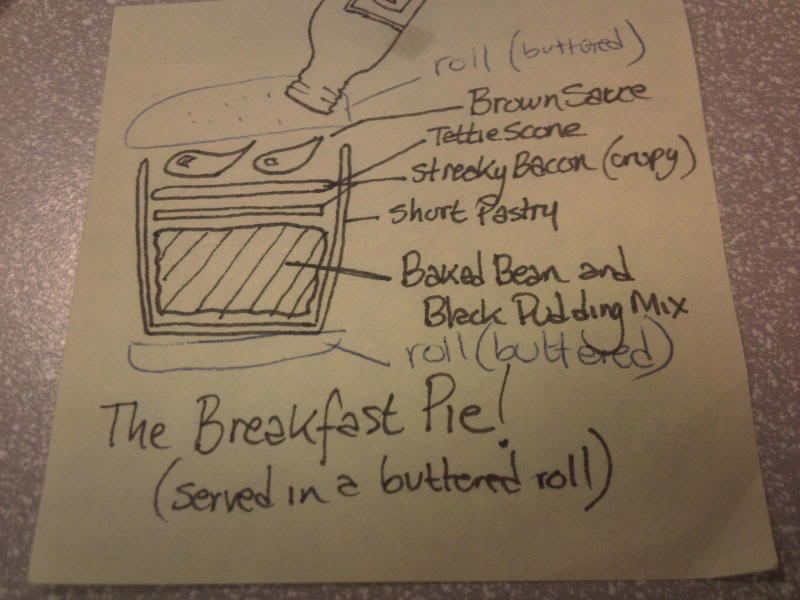 roll (buttered)
Brown Sauce
Tattie Scone
Streaky Bacon (crispy)
Short Pastry
Baked Bean and
Black Pudding Mix
roll (buttered)
The Breakfast Pie!
(served in a buttered roll)